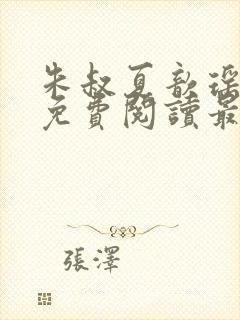 朱叔夏歆瑶
免費閱讀最
張澤